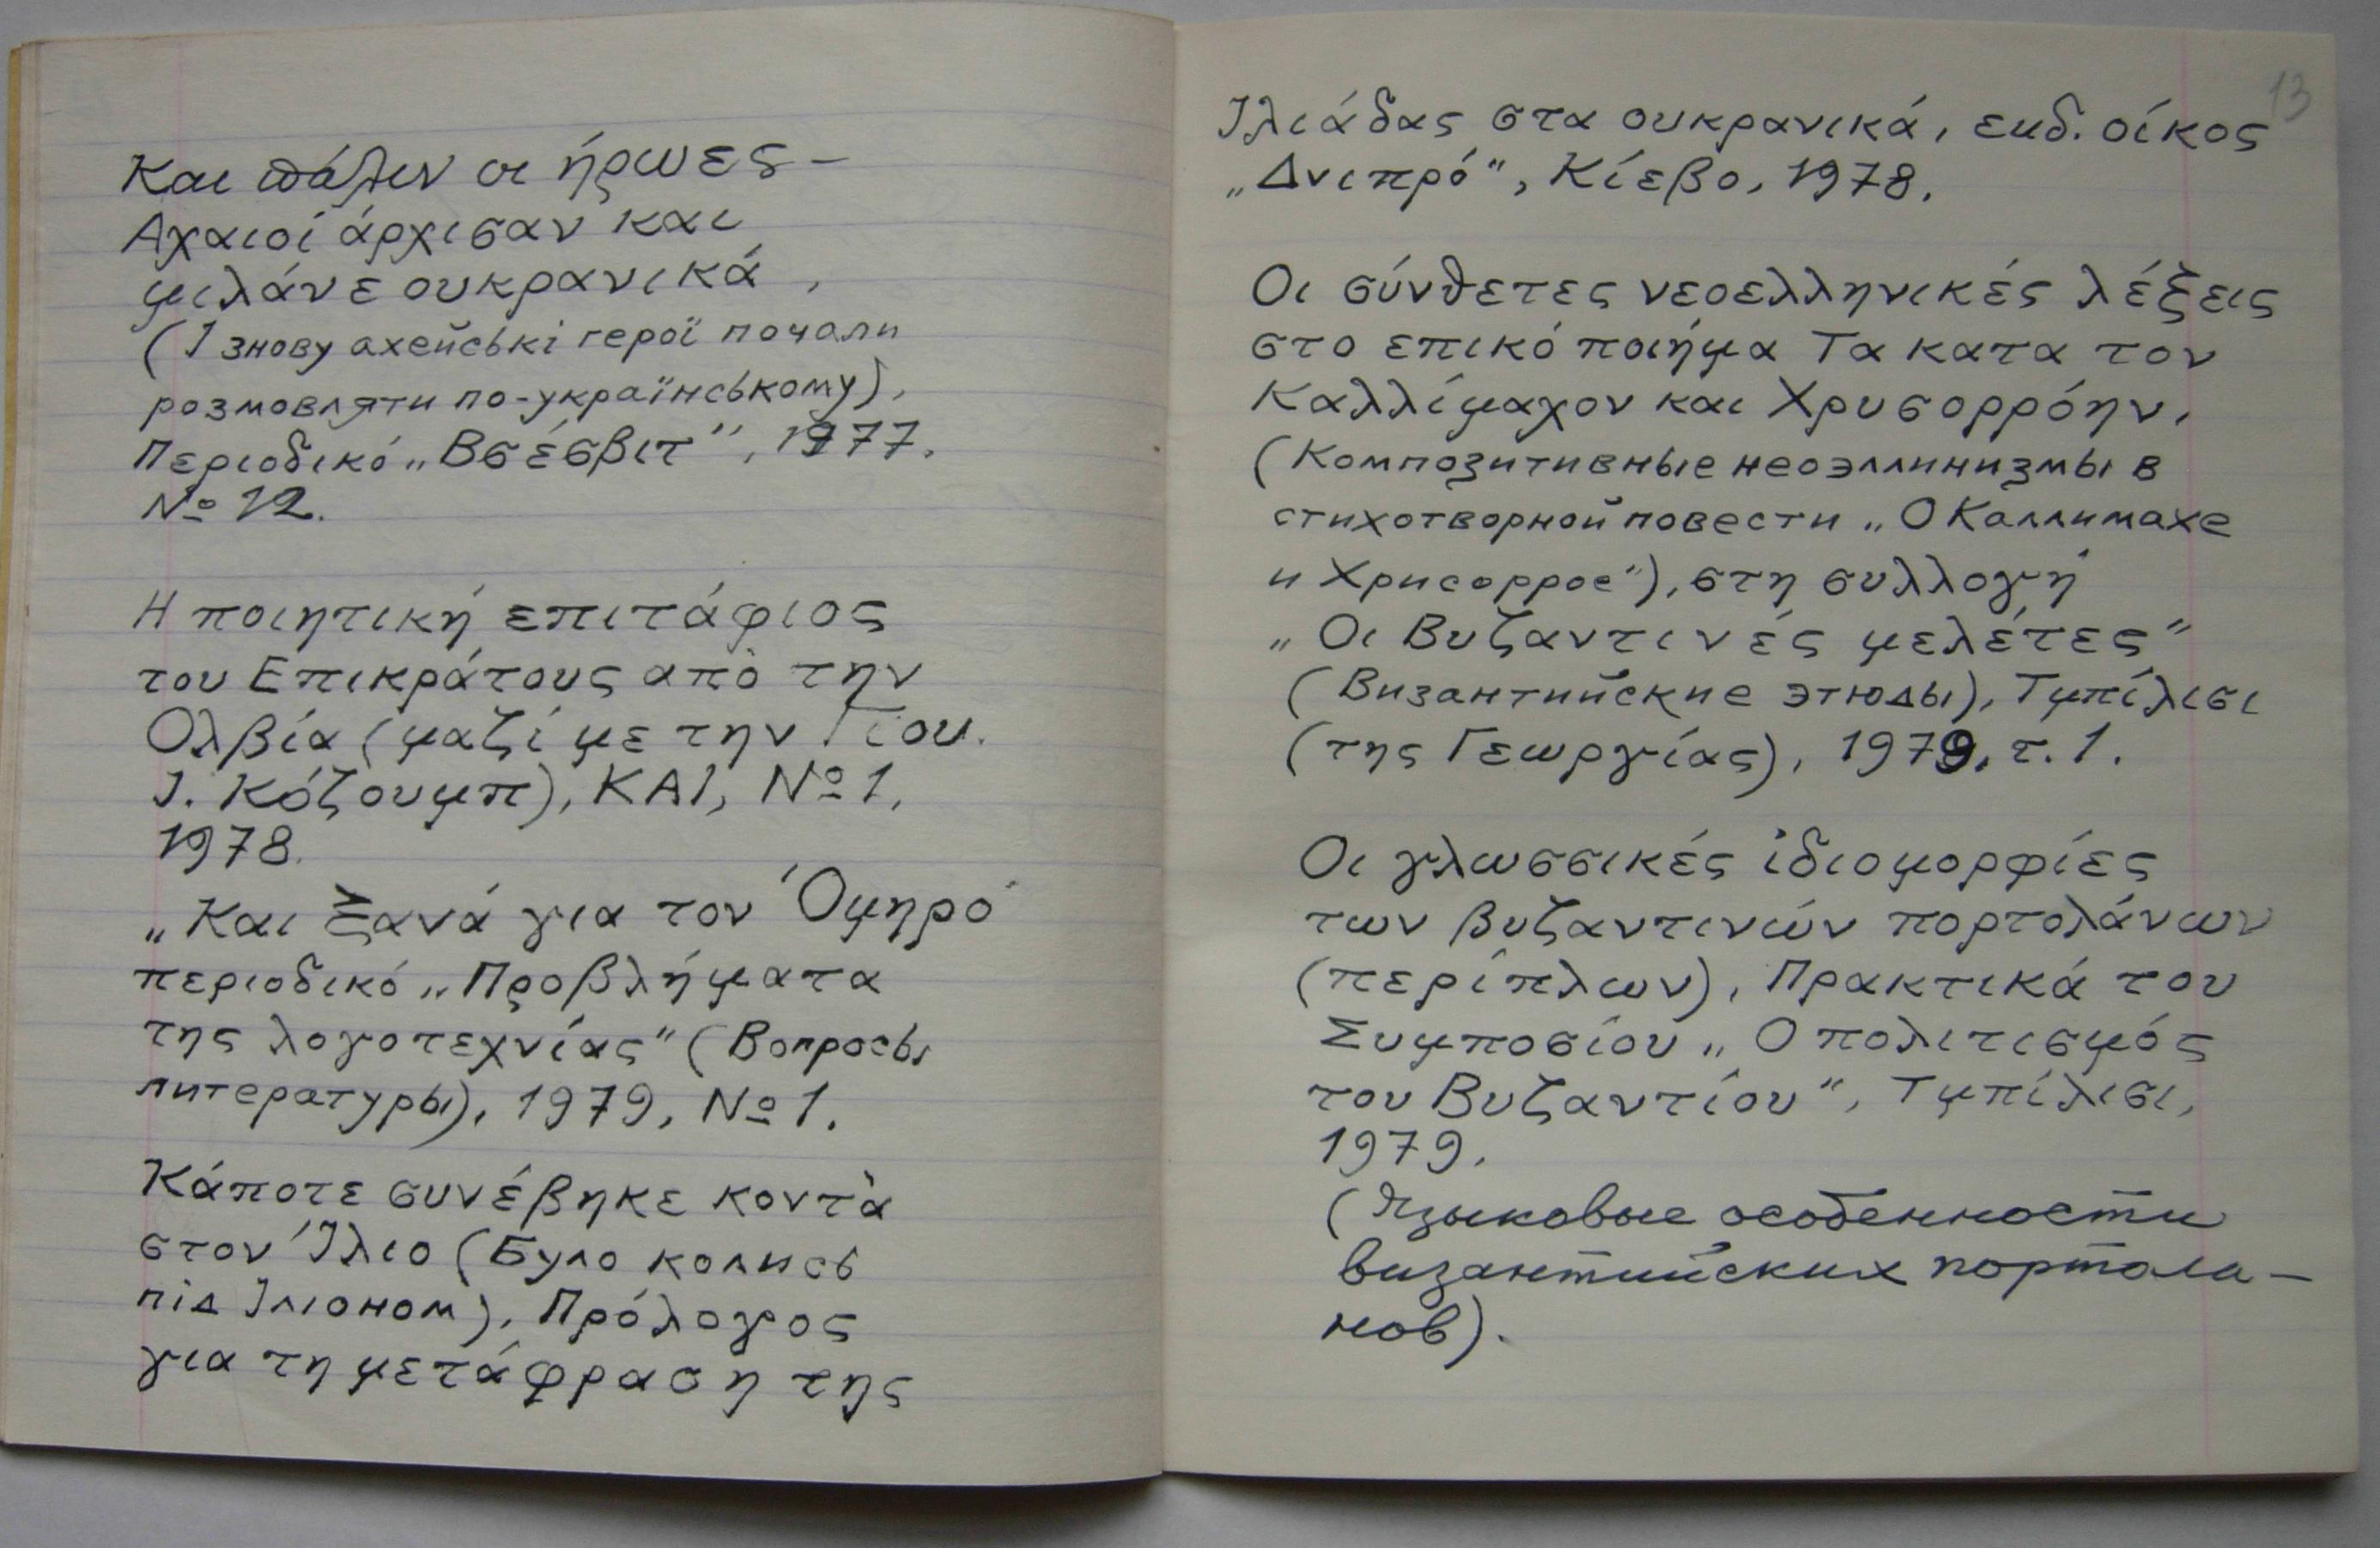 Και πάλιν οι ήρωες –
Αχαιοί άρχισαν και
μιλάνε ουκρανικά,
(І знову ахейські герої почали
розмовляти по-українському),
Περιοδικό „Βσέσβιτ”, 1977.
№ 12.
Η ποιητική επιτάφιος
του Επικράτους από την
Ολβία (μαζί με την Γιου.
Ι. Κόζουμπ), ΚΑΙ, № 1,
1978.
„Και ξανά για τον Όμηρο
περιοδικό „Προβλήματα
της λογοτεχνίας” (Вопросы
литературы), 1979, № 1.
Κάποτε συνέβηκε κοντά
στον Ίλιο (Було колись
під Іліоном), Πρόλογος
για τη μετάφραση της
13
Ιλιάδας στα ουκρανικά, εκδ. οίκος
„Δνιπρό”, Κίεβο, 1978.
Οι σύνθετες νεοελληνικές λέξεις
στο επικό ποιήμα Τα κατα τον
Καλλίμαχον και Χρυσορρόην,
(Композитивные неоэллинизмы в
стихотворной повести „О Каллимахе
и Хрисоррое”), στη συλλογή
„Οι Βυζαντινές μελέτες”
(Византийские этюды), Τμπίλισι
(της Γεωργίας), 1979, τ. 1.
Οι γλωσσικές ιδιομορφίες
των βυζαντινών πορτολάνων
(περίπλων), Πρακτικά του
Συμποσίου „Ο πολιτισμός
του Βυζαντίου”, Τμπίλισι,
1979.
(Языковые особенности
византийских портола–
нов).